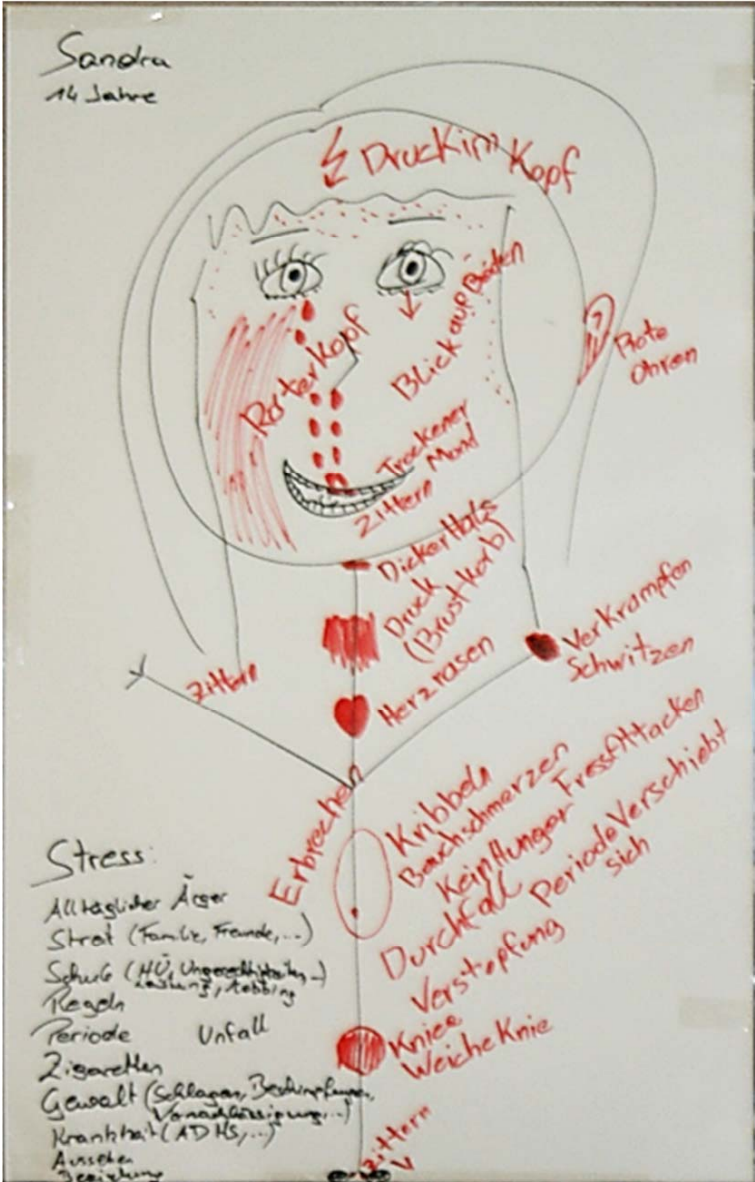 Sandra
14 Jahre
Druck im Kopf
Roter Kopf
Blick auf Boden
Rote
Ohren
Trockener
Mond
Zittern
Dicker Hals
Druck
(Brustkorb)
Herzrasen
Zittern
Verkrampfen
Schwitzen
Erbrechen
Kribbeln
Bauchschmerzen
Kein Hunger Fressattacken
Durchfall Periode Verschiebt
sich
Verstopfung
Kniee
Weiche Knie
Zittern
Stress:
Alltäglicher Ärger
Streit (Familie, Freunde,...)
Schule (HÜ, Ungerechtigkeiten,...)
Leistung, Mobbing
Regeln
Periode Unfall
Zigaretten
Gewalt (Schlagen, Beschimpfungen,
Vernachlässigung,...)
Krankheit (ADHS,...)
Aussehen
Beziehung